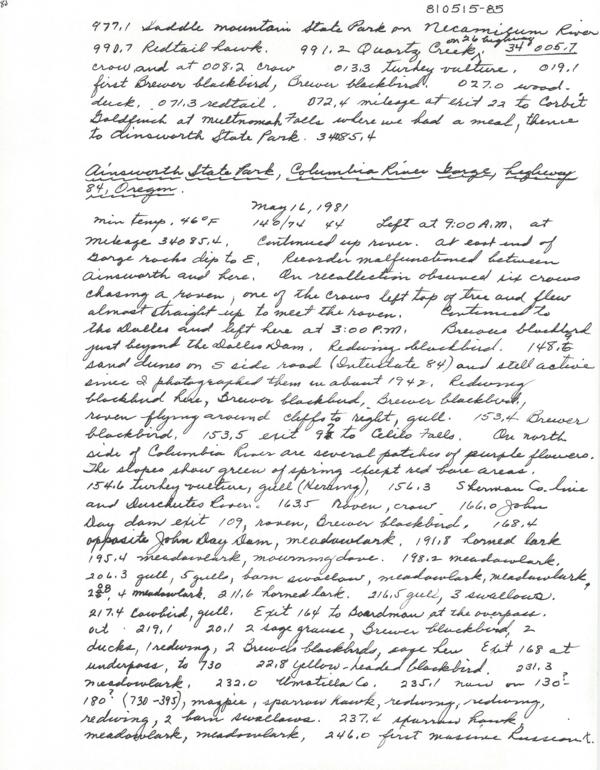 810515-85
977.1 Saddle mountain State Park on Necanicum River
on 26 highway
990.7 Redtail hawk. 991.2 Quartz Creek, 34 005.7
crow and at 008.2 crow 013.3 turkey vulture. 019.1
first Brewer blackbird, Brewer blackbird. 027.0 wood-
duck. 071.3 redtail. 072.4 mileage at exit 22 to Corbet
Goldfinch at multnomah Falls where we had a meal, thence
to Ainsworth State Park. 34085.4
Ainsworth State Park, Columbia River Gorge, highway
84, Oregon.
May 16, 1981
min temp. 46°F 140/74 44 Left at 9:00 A.M. at
mileage 34085.4. Continued up river. At east end of
Gorge rocks dip to E. Recorder malfunctioned between
Ainsworth and here. On recollection observed six crows
chasing a raven, one of the crows left top of tree and flew
almost straight up to meet the raven. Continued to
the Dalles and left here at 3:00 P.M. Brewers blackbyrd
just beyond the Dalles Dam. Redwing blackbird. 148.
sand dunes on S side road (Interstate 84) and still active
since I photographed them in about 1942. Redwing
blackbird here, Brewer blackbird, Brewer blackbird,
raven flying around cliffs to right, gull. 153.4 Brewer
blackbird. 153.5 exit 9? to Celilo Falls. On north
side of Columbia River are several patches of purple flowers.
The slopes show green of spring except red bare areas.
154.6 turkey vulture, gull (Herring), 156.3 Sherman Co. line
and Deschutes River. 163.5 Raven, crow. 166.0 John
Day dam exit 109, raven, Brewer blackbird. 168.4
opposite John Day Dam, meadowlark. 191.8 horned lark
195.4 meadowlark, mourning dove. 198.2 meadowlark.
206.3 gull, 5 gulls, barn swallow, meadowlark, meadowlark,
4 meadowlark. 211.6 horned lark. 216.5 gull, 3 swallows.
217.4 Cowbird, gull. Exit 164 to Boardman at the overpass.
out 219.1 20.1 2 sage grouse, Brewer blackbird, 2
ducks, 1 redwing, 2 Brewer's blackbirds, sage hen Exit 168 at
underpass, to 730 22.8 yellow-headed blackbird. 231.3
meadowlark. 232.0 Umatilla Co. 235.1 now on 130?-
180? (730-395), magpie, sparrow hawk, redwing, redwing,
redwing, 2 barn swallows. 237.4 sparrow hawk,
meadowlark, meadowlark, 246.0 first massive Russian t.